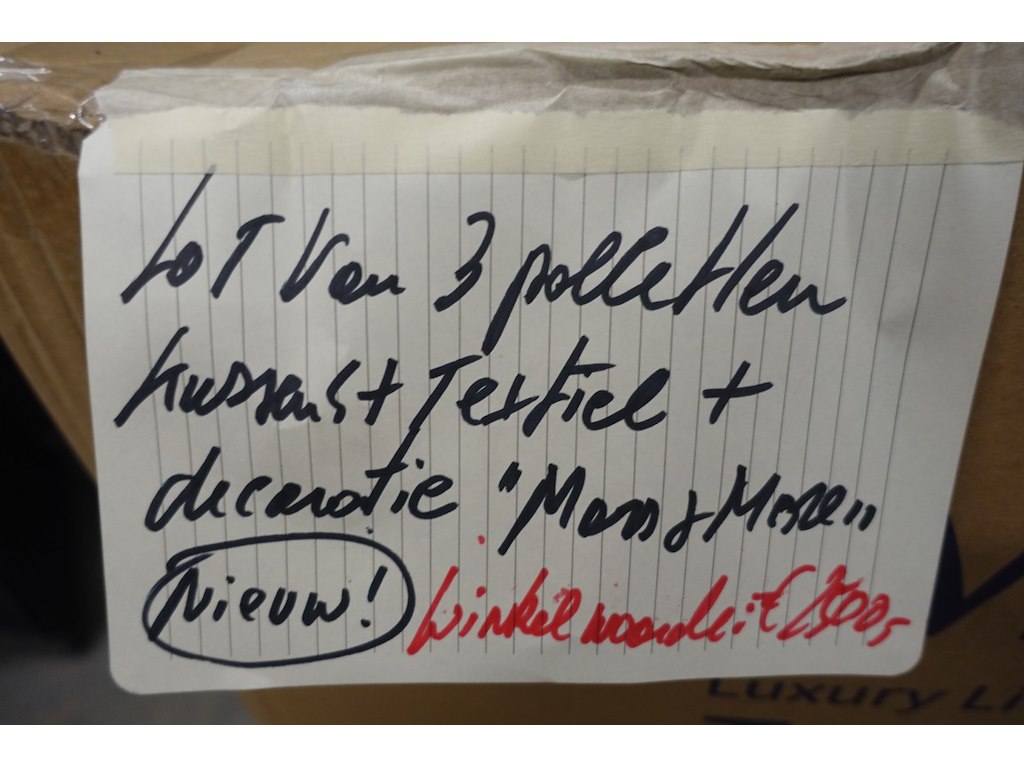 LOT Van 3 palletten
kussens + Textiel +
decoratie "Moss & Mose"
Nieuw! winkelwaarde:
Luxury Li